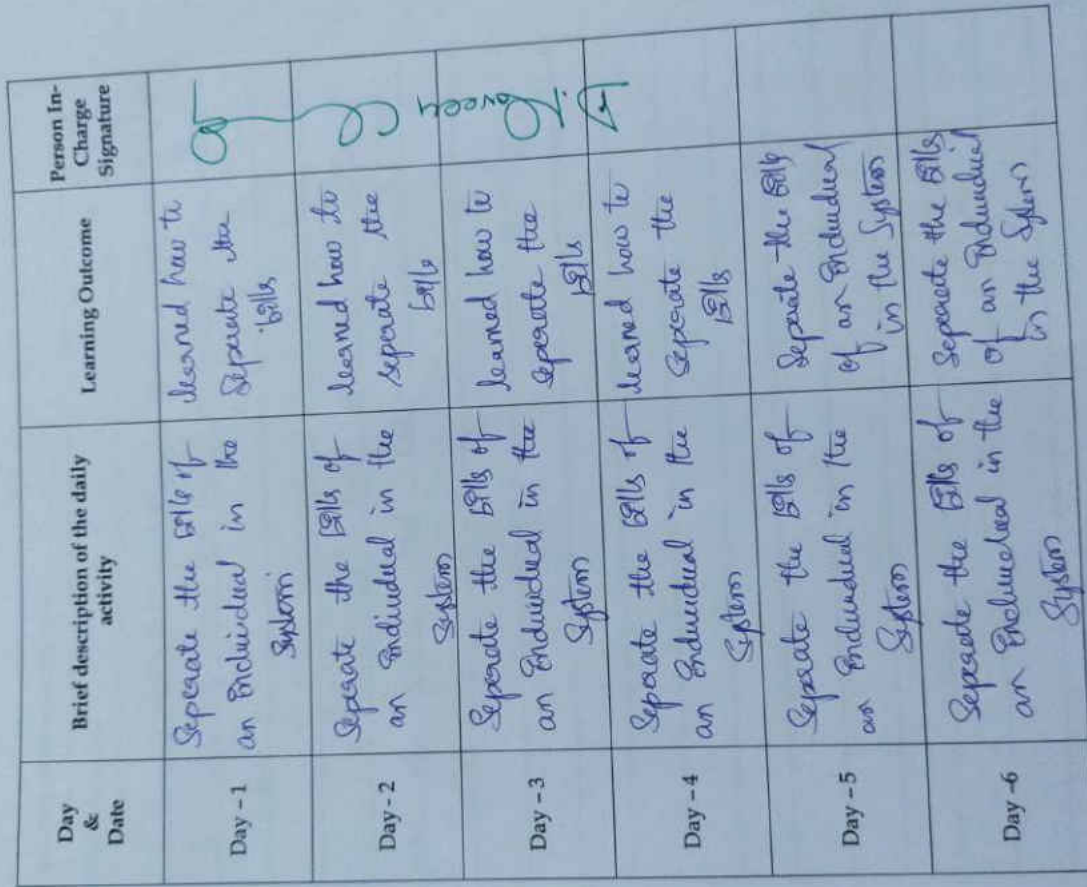 Day
&
Date
Brief description of the daily
activity
Learning Outcome
Person In-
Charge
Signature
Day - 1
Seperate the bills of
an Individual in the
System
learned how to
Seperate the
bills
Day - 2
Seperate the bills of
an individual in the
System
learned how to
seperate the
bills
Day - 3
Seperate the bills of
an Individual in the
System
learned how to
seperate the
bills
Day - 4
Seperate the bills of
an Individual in the
System
learned how to
Seperate the
Bills
Day - 5
Seperate the bills of
an Individual in the
System
Seperate the Bills
of an Individual
in the System
Day -6
Seperate the bills of
an Individual in the
System
Seperate the Bills
of an Individual
in the System